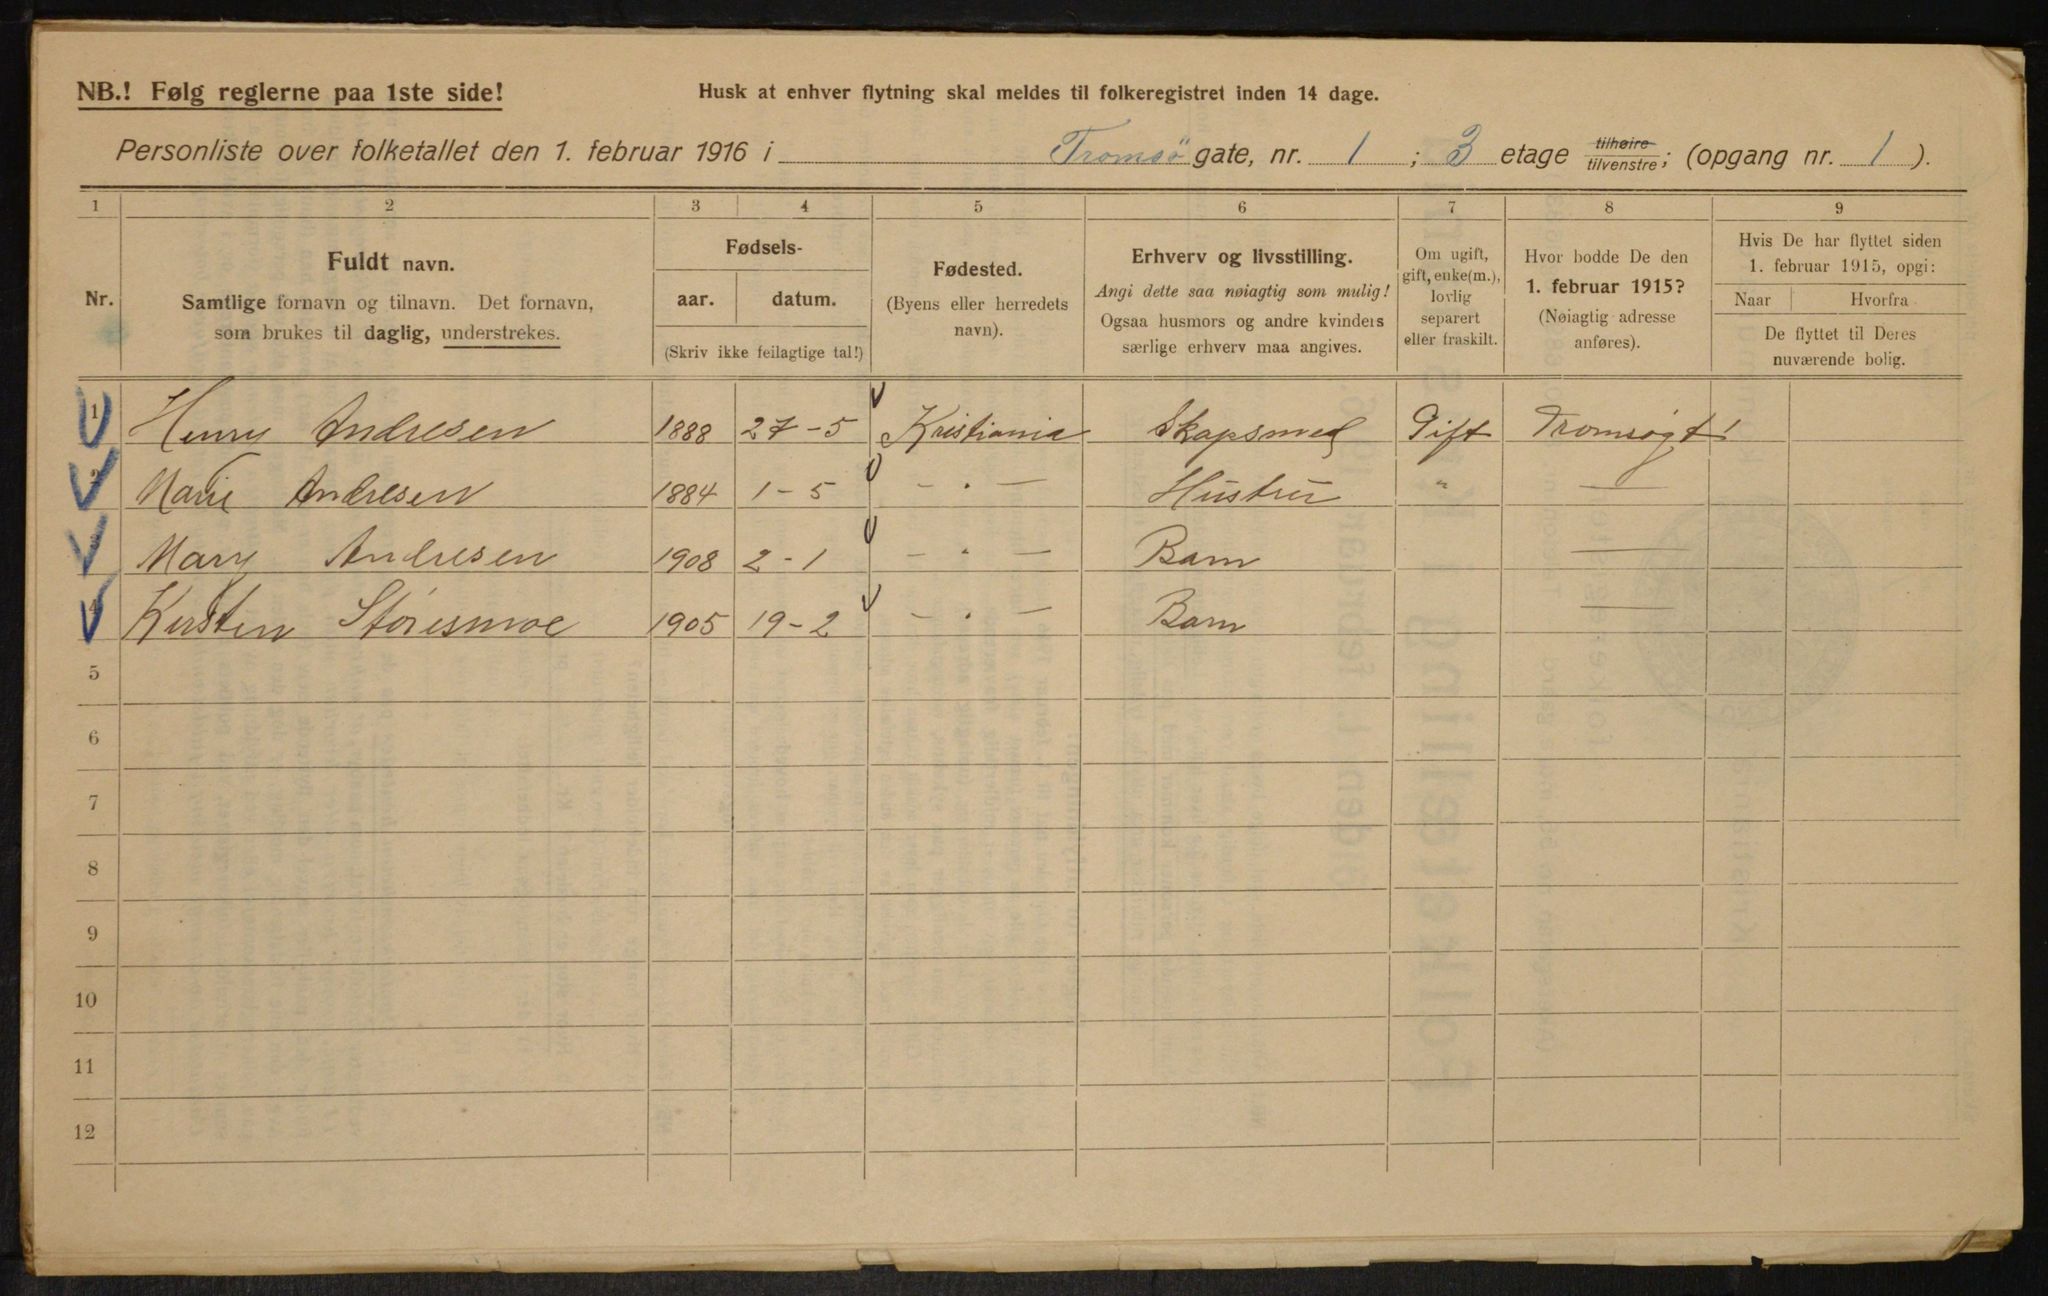 NB.! Følg reglerne paa 1ste side!
Husk at enhver flytning skal meldes til folkeregistret inden 14 dage.
Personliste over folketallet den 1. februar 1916 i Tromsö gate, nr. 1 ; 3 etage tilhøire/tilvenstre; (opgang nr. 1 ).
1 2 3 4 5 6 7 8 9
Nr.
Fuldt navn.
Samtlige fornavn og tilnavn. Det fornavn,
som brukes til daglig, understrekes.
Fødsels-
aar. datum.
(Skriv ikke feilagtige tal!)
Fødested.
(Byens eller herredets
navn).
Erhverv og livsstilling.
Angi dette saa nøiagtig som mulig!
Ogsaa husmors og andre kvinders
særlige erhverv maa angives.
Om ugift,
gift, enke(m.),
lovlig
separert
eller fraskilt.
Hvor bodde De den
1. februar 1915?
(Nøiagtig adresse
anføres).
Hvis De har flyttet siden
1. februar 1915, opgi:
Naar Hvorfra
De flyttet til Deres
nuværende bolig.
1 Henry Andresen 1888 27-5 Kristiania Skapsmed Gift Tromsøgt 1
2 Marie Andresen 1884 1-5 — . — Hustru " —
3 Mary Andresen 1908 2-1 — . — Barn —
4 Kirsten Störesmoe 1905 19-2 — . — Barn —
5
6
7
8
9
10
11
12